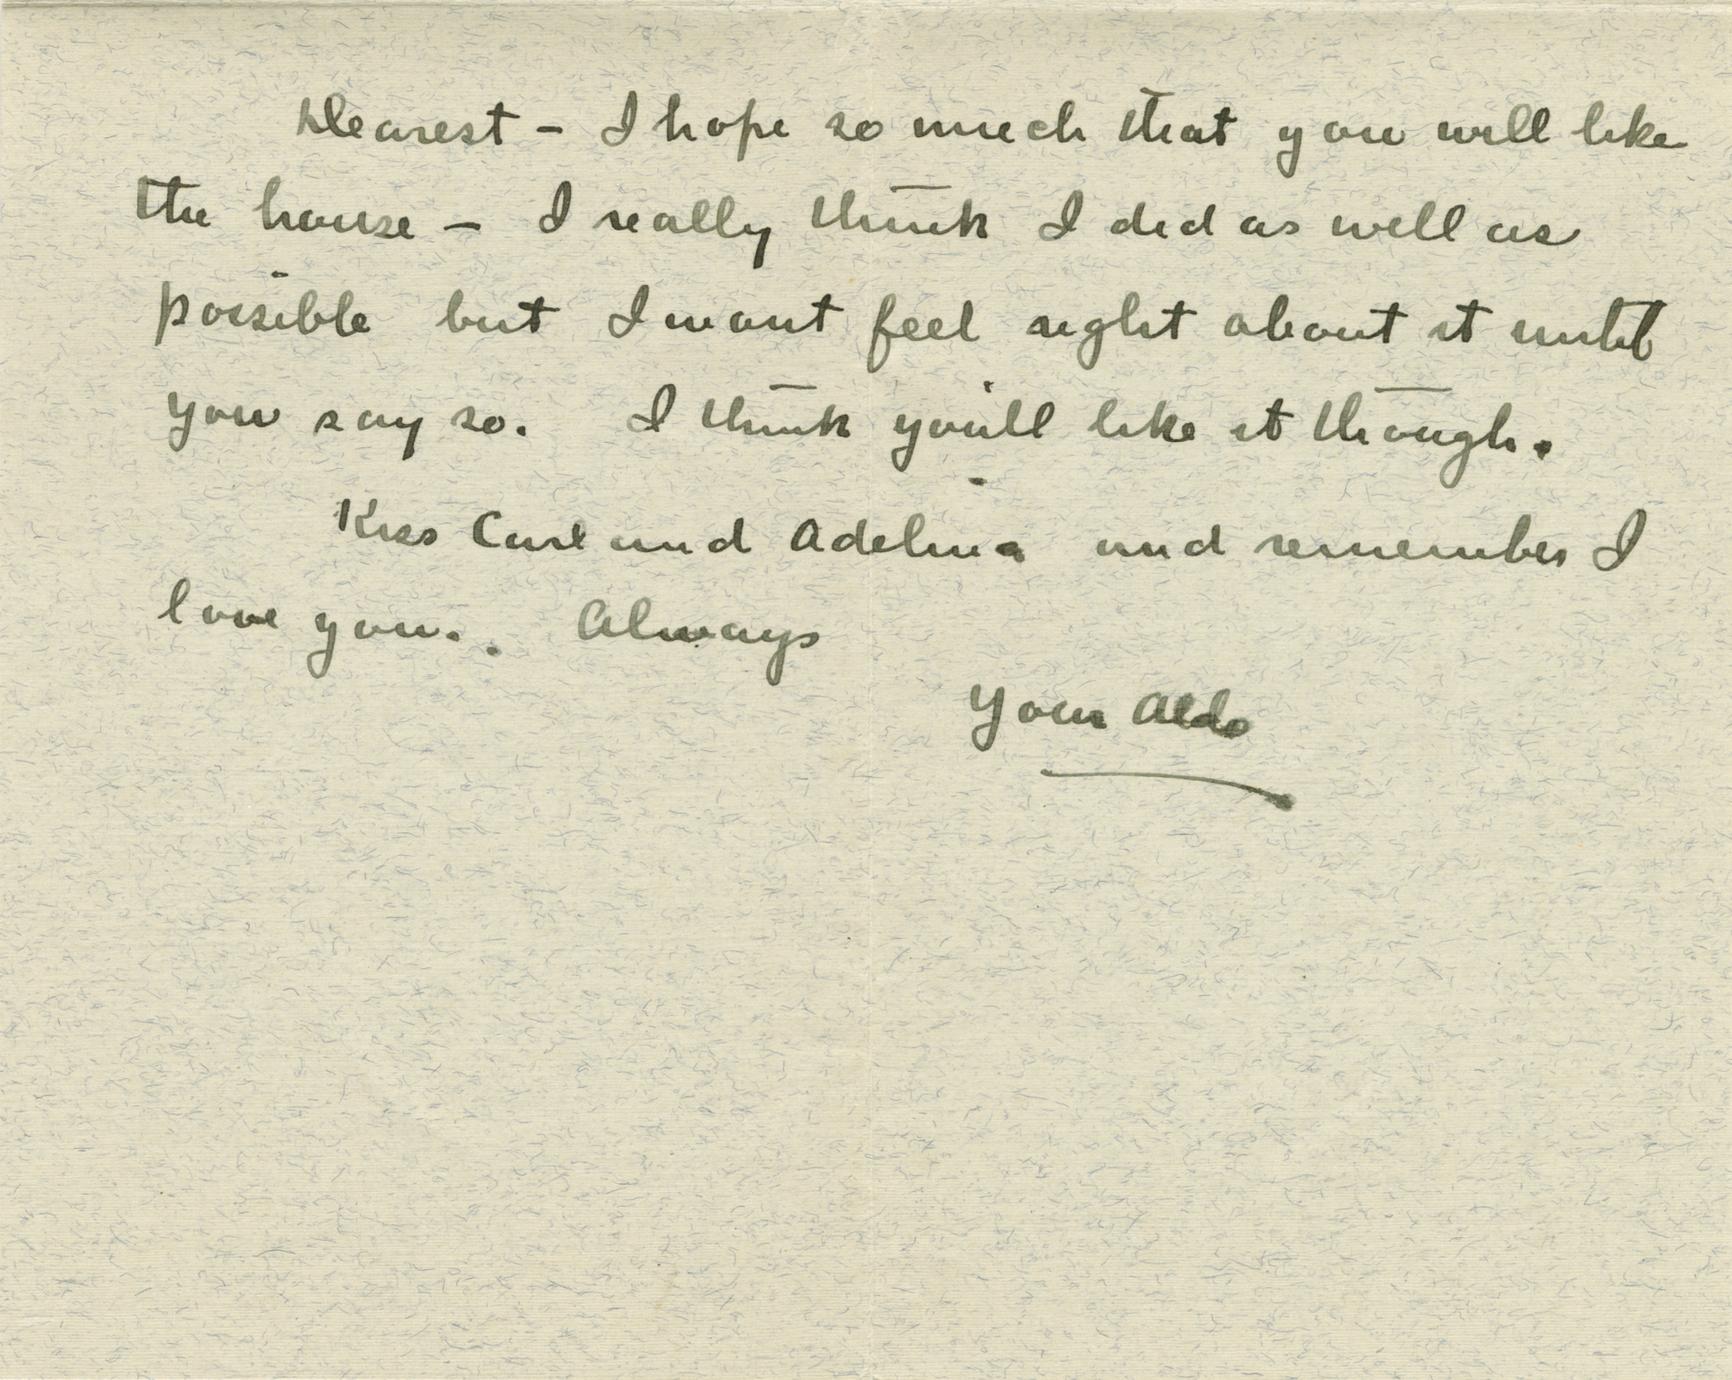 Dearest - I hope so much that you will like
the house - I really think I did as well as
possible but I wont feel right about it until
you say so. I think you'll like it though.
Kiss Carl and Adelina and remember I
love you. Always
Your Aldo